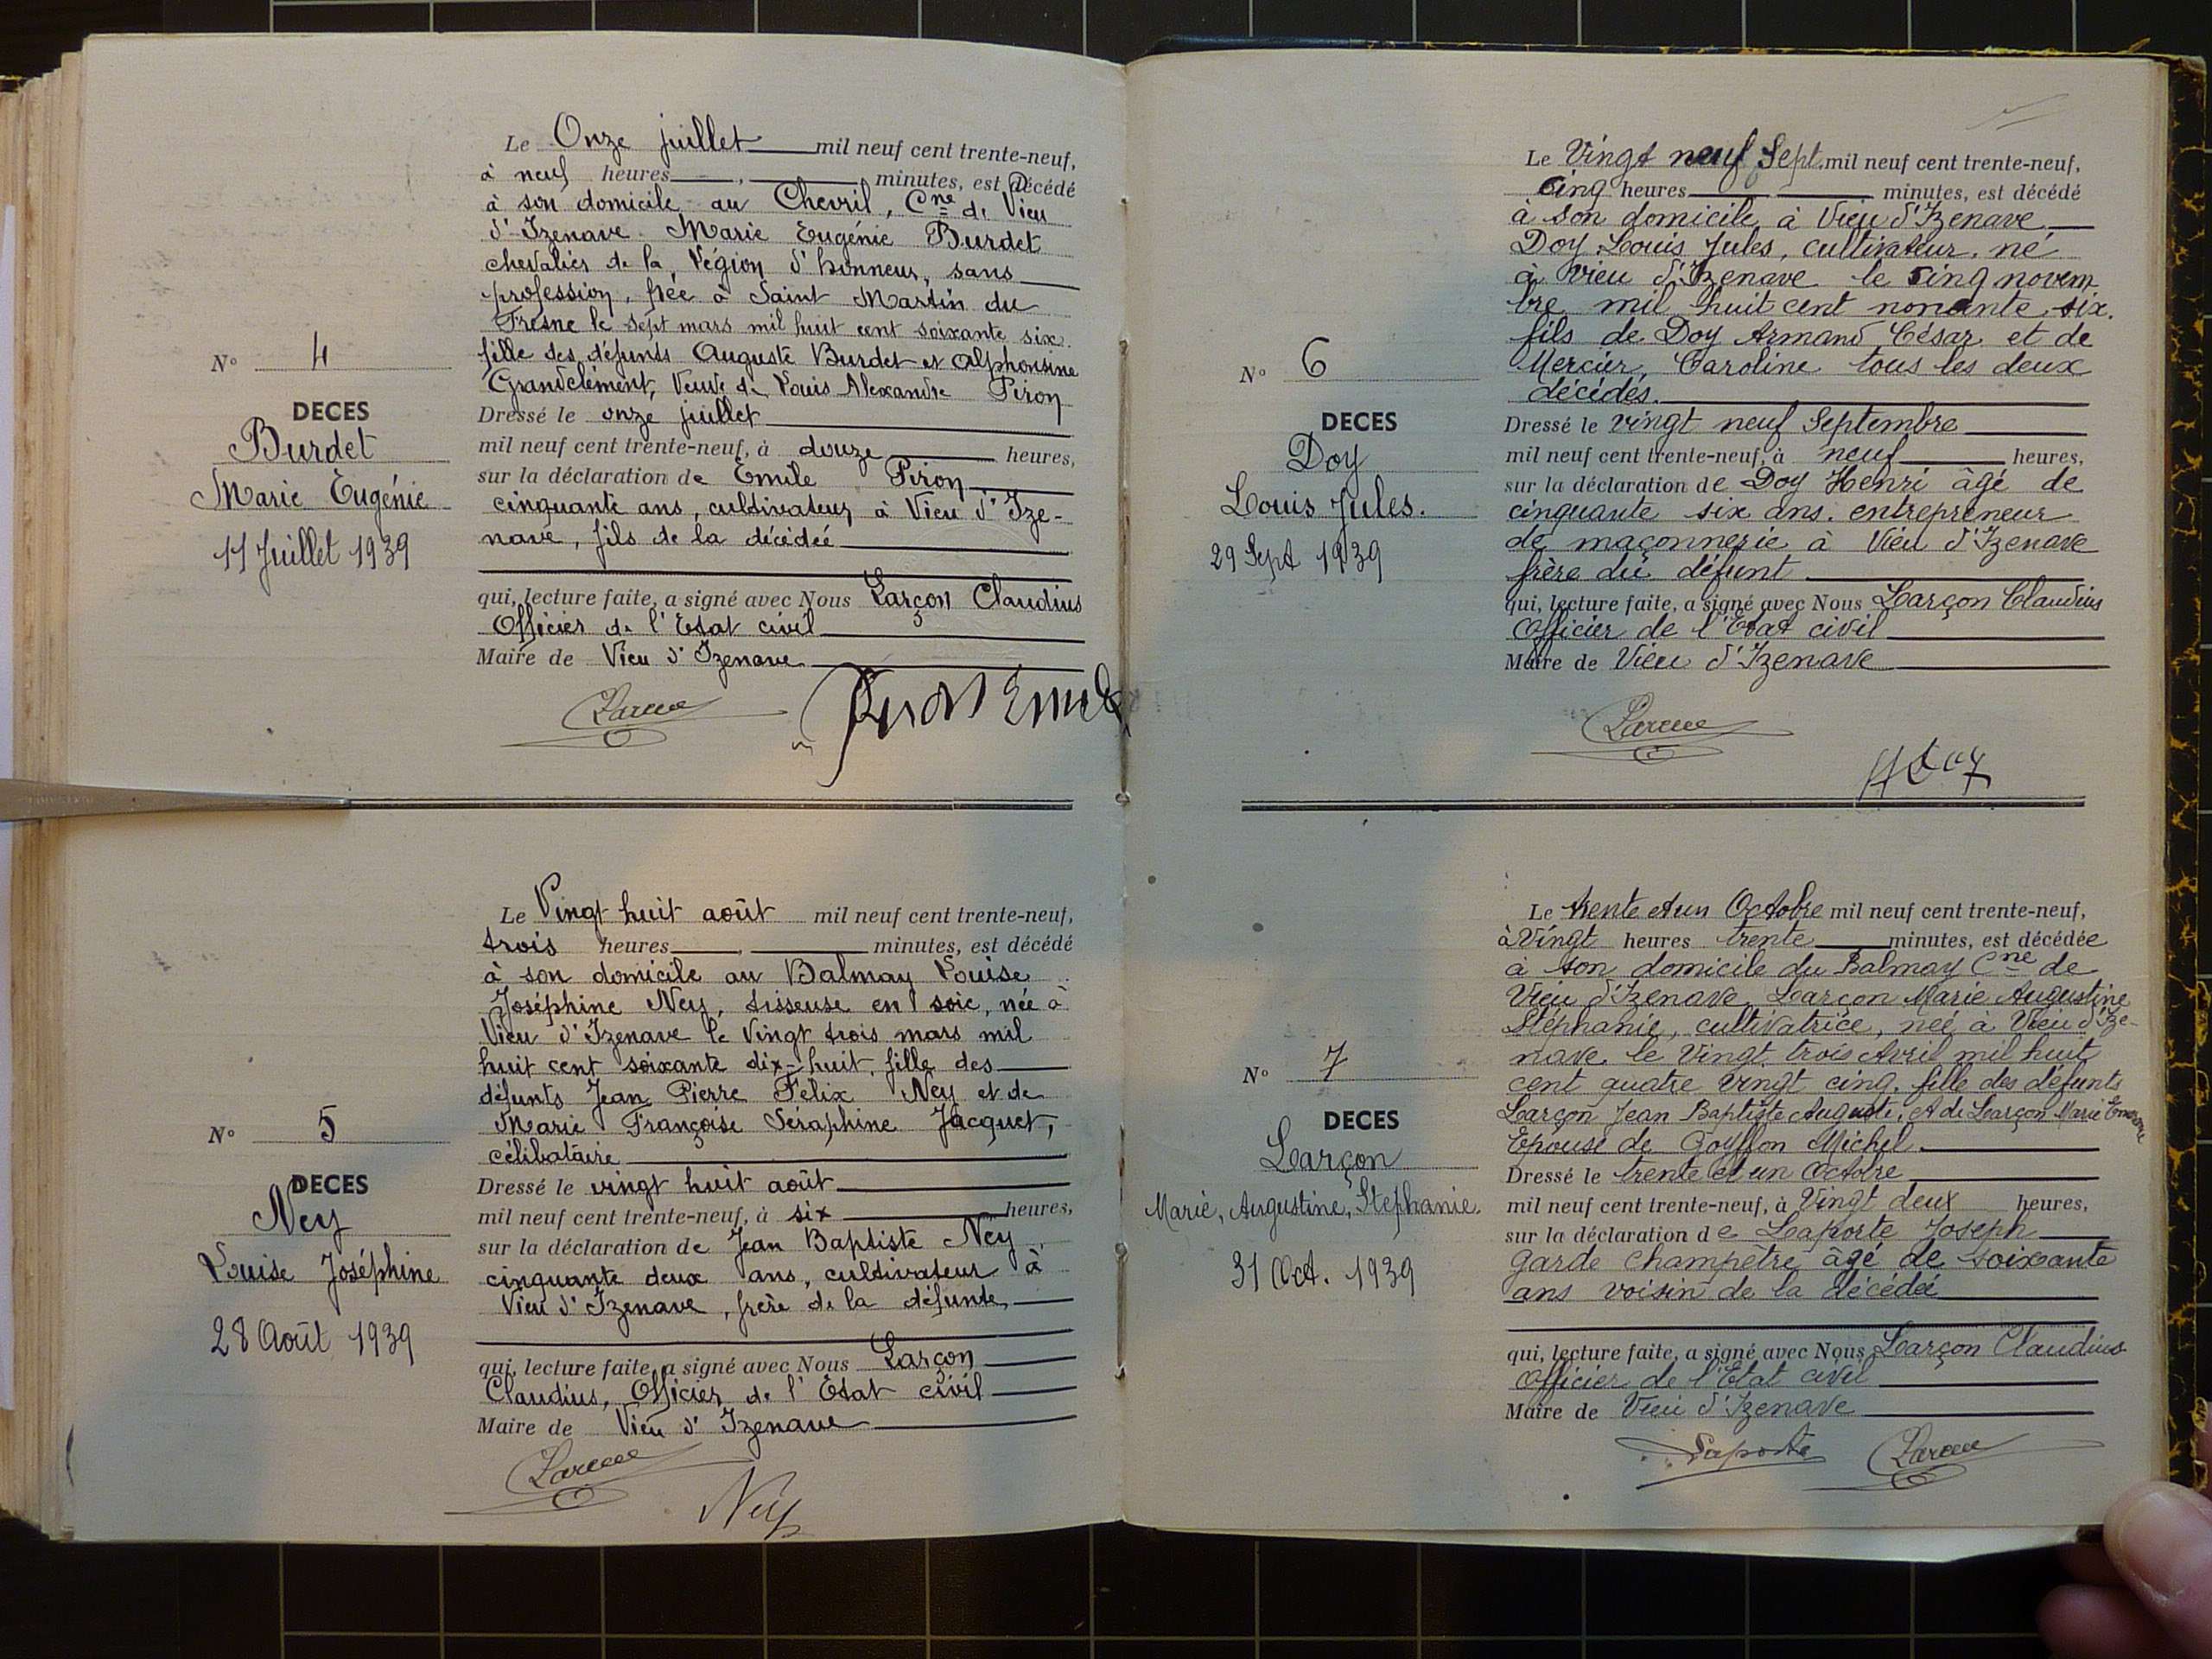 Le Onze juillet mil neuf cent trente-neuf,
à neuf heures , minutes, est décédé
à son domicile au Chevril, Cne de Vieu
d'Izenave Marie Eugénie Burdet
chevalier de la Légion d'honneur, sans
profession, née à Saint Martin du
Fresne le sept mars mil huit cent soixante six.
fille des défunts Auguste Burdet et Alphonsine
Grandclément, Veuve de Louis Alexandre Piron
Nº 4
DECES
Burdet
Marie Eugénie
11 Juillet 1939
Dressé le onze juillet
mil neuf cent trente-neuf, à douze heures,
sur la déclaration de Emile Piron
cinquante ans, cultivateur à Vieu d'Ize-
nave, fils de la décédée
qui, lecture faite, a signé avec Nous Larçon Claudius
Officier de l'Etat civil
Maire de Vieu d'Izenave
Piron Emile
Le Vingt huit août mil neuf cent trente-neuf,
trois heures , minutes, est décédé
à son domicile au Balmay Louise
Joséphine Ney, tisseuse en soie, née à
Vieu d'Izenave le Vingt trois mars mil
huit cent soixante dix-huit, fille des
défunts Jean Pierre Félix Ney et de
Marie Françoise Séraphine Jacquet,
célibataire
Nº 5
DECES
Ney
Louise Joséphine
28 Août 1939
Dressé le vingt huit août
mil neuf cent trente-neuf, à six heures,
sur la déclaration de Jean Baptiste Ney
cinquante deux ans, cultivateur à
Vieu d'Izenave, frère de la défunte,
qui, lecture faite, a signé avec Nous Larçon
Claudius, Officier de l'Etat civil
Maire de Vieu d'Izenave
Ney
Le Vingt neuf Sept. mil neuf cent trente-neuf,
cinq heures minutes, est décédé
à son domicile à Vieu d'Izenave
Doy Louis Jules, cultivateur, né
à Vieu d'Izenave le cinq novem-
bre mil huit cent nonante six.
fils de Doy Armand César et de
Mercier, Caroline tous les deux
décédés.
Nº 6
DECES
Doy
Louis Jules.
29 Sept 1939
Dressé le vingt neuf Septembre
mil neuf cent trente-neuf, à neuf heures,
sur la déclaration de Doy Henri âgé de
cinquante six ans. entrepreneur
de maçonnerie à Vieu d'Izenave
frère du défunt
qui, lecture faite, a signé avec Nous Larçon Claudius
Officier de l'Etat civil
Maire de Vieu d'Izenave
H Doy
Le trente et un Octobre mil neuf cent trente-neuf,
à Vingt heures trente minutes, est décédée
à son domicile du Balmay Cne de
Vieu d'Izenave, Larçon Marie Augustine
Stéphanie, cultivatrice, née à Vieu d'Ize-
nave le Vingt trois Avril mil huit
cent quatre vingt cinq. fille des défunts
Larçon Jean Baptiste Auguste, et de Larçon Marie
Epouse de Goyffon Michel.
Nº 7
DECES
Larçon
Marie, Augustine, Stephanie.
31 Oct. 1939
Dressé le trente et un Octobre
mil neuf cent trente-neuf, à Vingt deux heures,
sur la déclaration de Laporte Joseph
garde champêtre âgé de soixante
ans voisin de la décédée
qui, lecture faite, a signé avec Nous Larçon Claudius
Officier de l'Etat civil
Maire de Vieu d'Izenave
Laporte